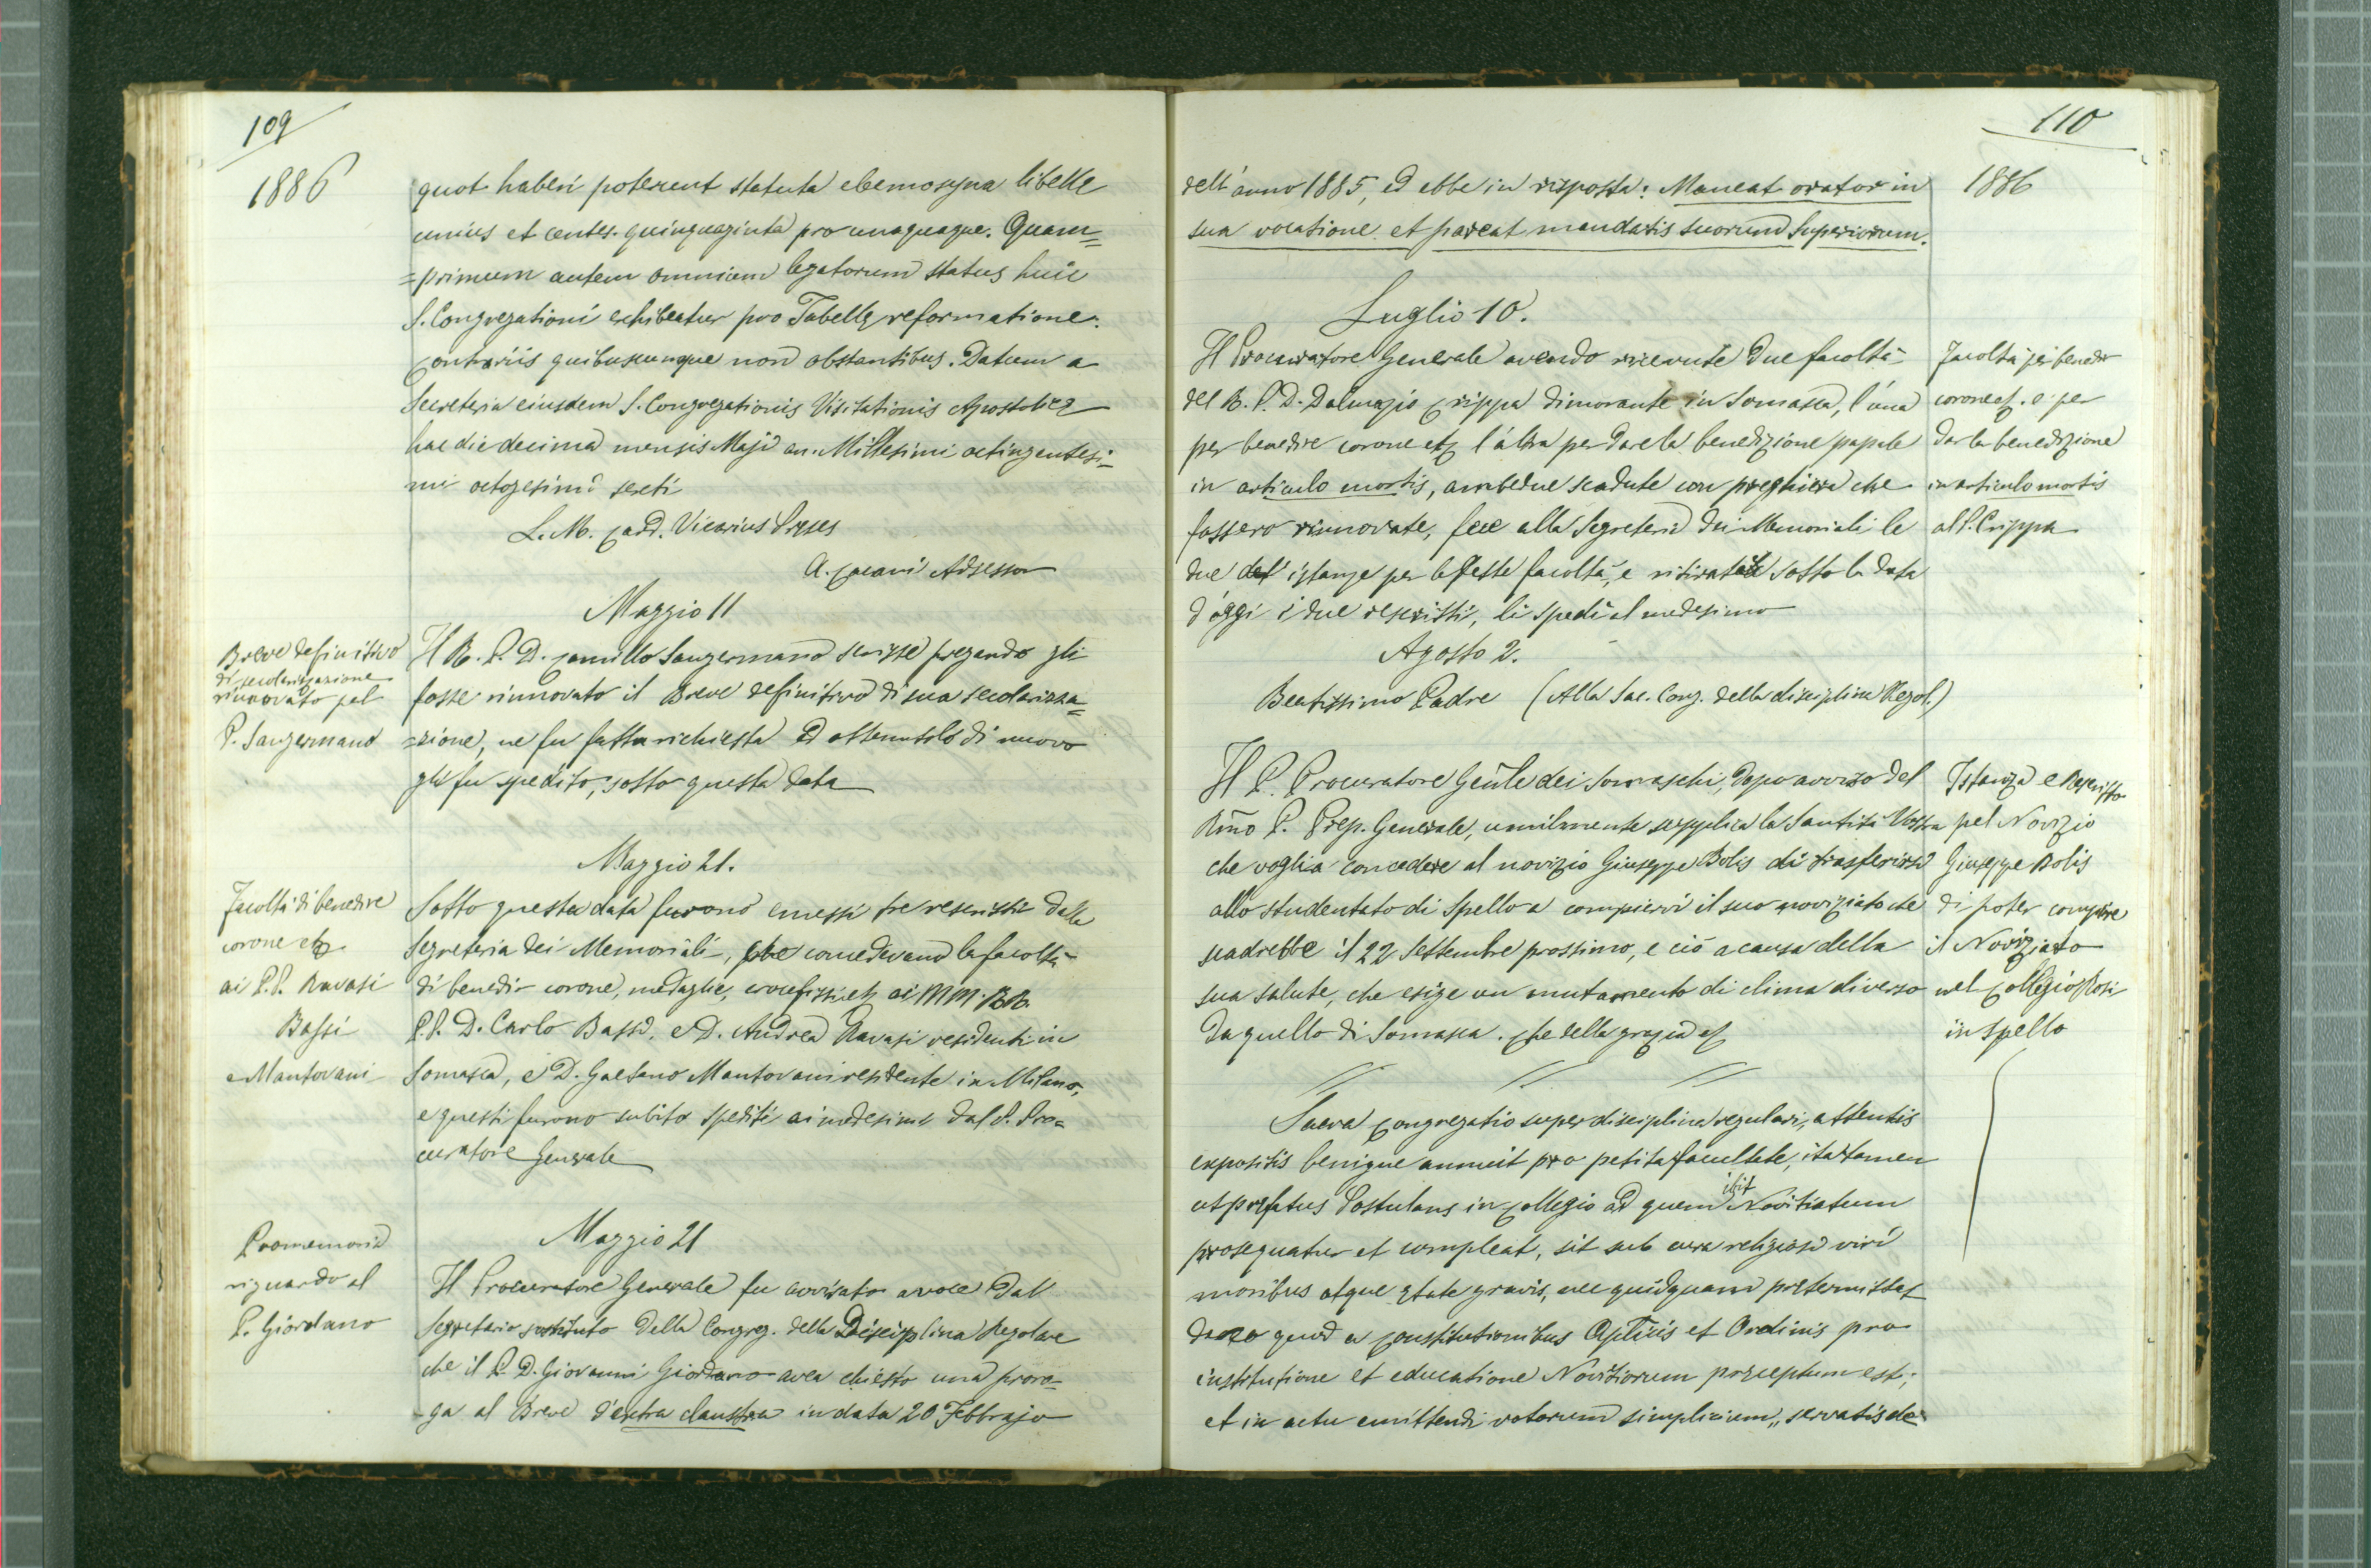 109
1886
quot haberi poterunt statuta elemosyna libelle
unius et centes. quinquaginta pro unaquaque. Quam=
=primum autem omnium legatorum status huic
S. Congregationi exhibeatur pro Tabellę reformatione.
Contrariis quibuscumque non obstantibus. Datum a
Secreteria eiusdem S. Congregationis Visitationis Apostolicę
hac die decima mensis Maji an. Millesimi octingentesi=
mi octogesimi sexti
L. M. Card. Vicarius Pręses
A. Cacani Adsessor
Maggio 11
Breve definitivo
di secolarizzazione
rinnovato pel
P. Sangermano
Il R. P. D. Camillo Sangermano scrisse pregando gli
fosse rinnovato il Breve definitivo di sua secolarizza=
=zione, ne fu fatta richiesta ed ottenutolo di nuovo
gli fu spedito, sotto questa data
Maggio 21.
Facoltà di benedire
corone etz
ai P.P. Ravasi
Bassi
e Mantovani
Sotto questa data furono emessi tre rescritti dalla
Segreteria dei Memoriali, che concedevano la facoltà
di benedir corone, medaglie, crocefissi etz ai MM. RR.
P.P. D. Carlo Bassi, e D. Andrea Ravasi residenti in
Somasca, e D. Gaetano Mantovani residente in Milano,
e questi furono subito spediti ai medesimi dal P. Pro=
curatore Generale
Maggio 21
Promemoria
riguardo al
P. Giordano
Il Procuratore Generale fu avvisato a voce dal
Segretario sostituto della Congreg. della Disciplina Regolare
che il P. D. Giovanni Giordano avea chiesto una proro=
=ga al Breve d'extra claustra in data 20 Febbrajo
110
1886
dell'anno 1885, ed ebbe in risposta: Maneat orator in
sua vocatione et pareat mandatis suorum Superiorum.
Luglio 10.
Il Procuratore Generale avendo ricevute due facoltà
del R. P. D. Dalmazio Crippa dimorante in Somasca, l'una
per benedire corone etz l'altra per dare la benedizione papale
in articulo mortis, ambedue scadute con preghiera che
fossero rinnovate, fece alla Segreteria dei Memoriali le
due istanze per le stesse facoltà, e ritirate sotto la data
d'oggi i due rescritti, li spedì al medesimo
Facoltà per benedir
corone etz. e per
dar la benedizione
in articulo mortis
al P. Crippa
Agosto 2.
Beatissimo Padre (Alla Sac. Cong. della disciplina Regol.)
Il P. Procuratore Genle dei Somaschi, dopo avviso del
Rmo P. Prep. Generale, umilmente supplica la Santità Vostra
che voglia concedere al novizio Giuseppe Bolis di trasferirsi
allo studentato di Spello a compiervi il suo noviziato che
scadrebbe il 22 Settembre prossimo, e ciò a causa della
sua salute, che esige un mutamento di clima diverso
da quello di Somasca. Che della grazia etz
Istanza e Rescritto
pel Novizio
Giuseppe Bolis
di poter compire
il Noviziato
nel Collegio Rosi
in Spello
Sacra Congregatio super disciplina regulari, attentis
expositis benigne annuit pro petita facultate, ita tamen
ut pręfatus Postulans in Collegio ad quem ibit Novitiatum
prosequatur et compleat, sit sub cura religiosi viri
moribus atque ętate gravis, nec quidquam prętermittat
quod a Constitutionibus Aplicis et Ordinis pro
institutione et educatione Novitiorum pręceptum est;
et in actu emittendi votorum simplicium, servatis de=